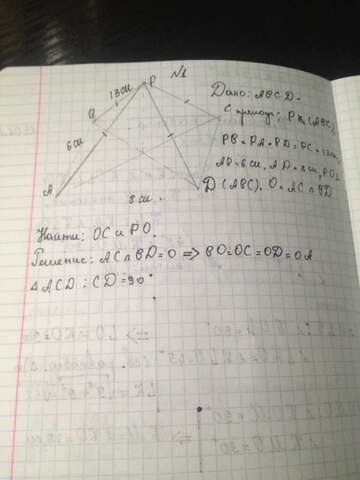 13см
P
№1
B
6см
A
8см
D
C
Дано: ABCD-
прямоуг,
(ABC),
PB=PA=PD=PC=13см,
AB=6см, AD=8см,
(ABC). O=AC∩BD
Найти: OC и PO.
Решение: AC∩BD=O => BO=OC=OD=OA
△ACD: CD=90°